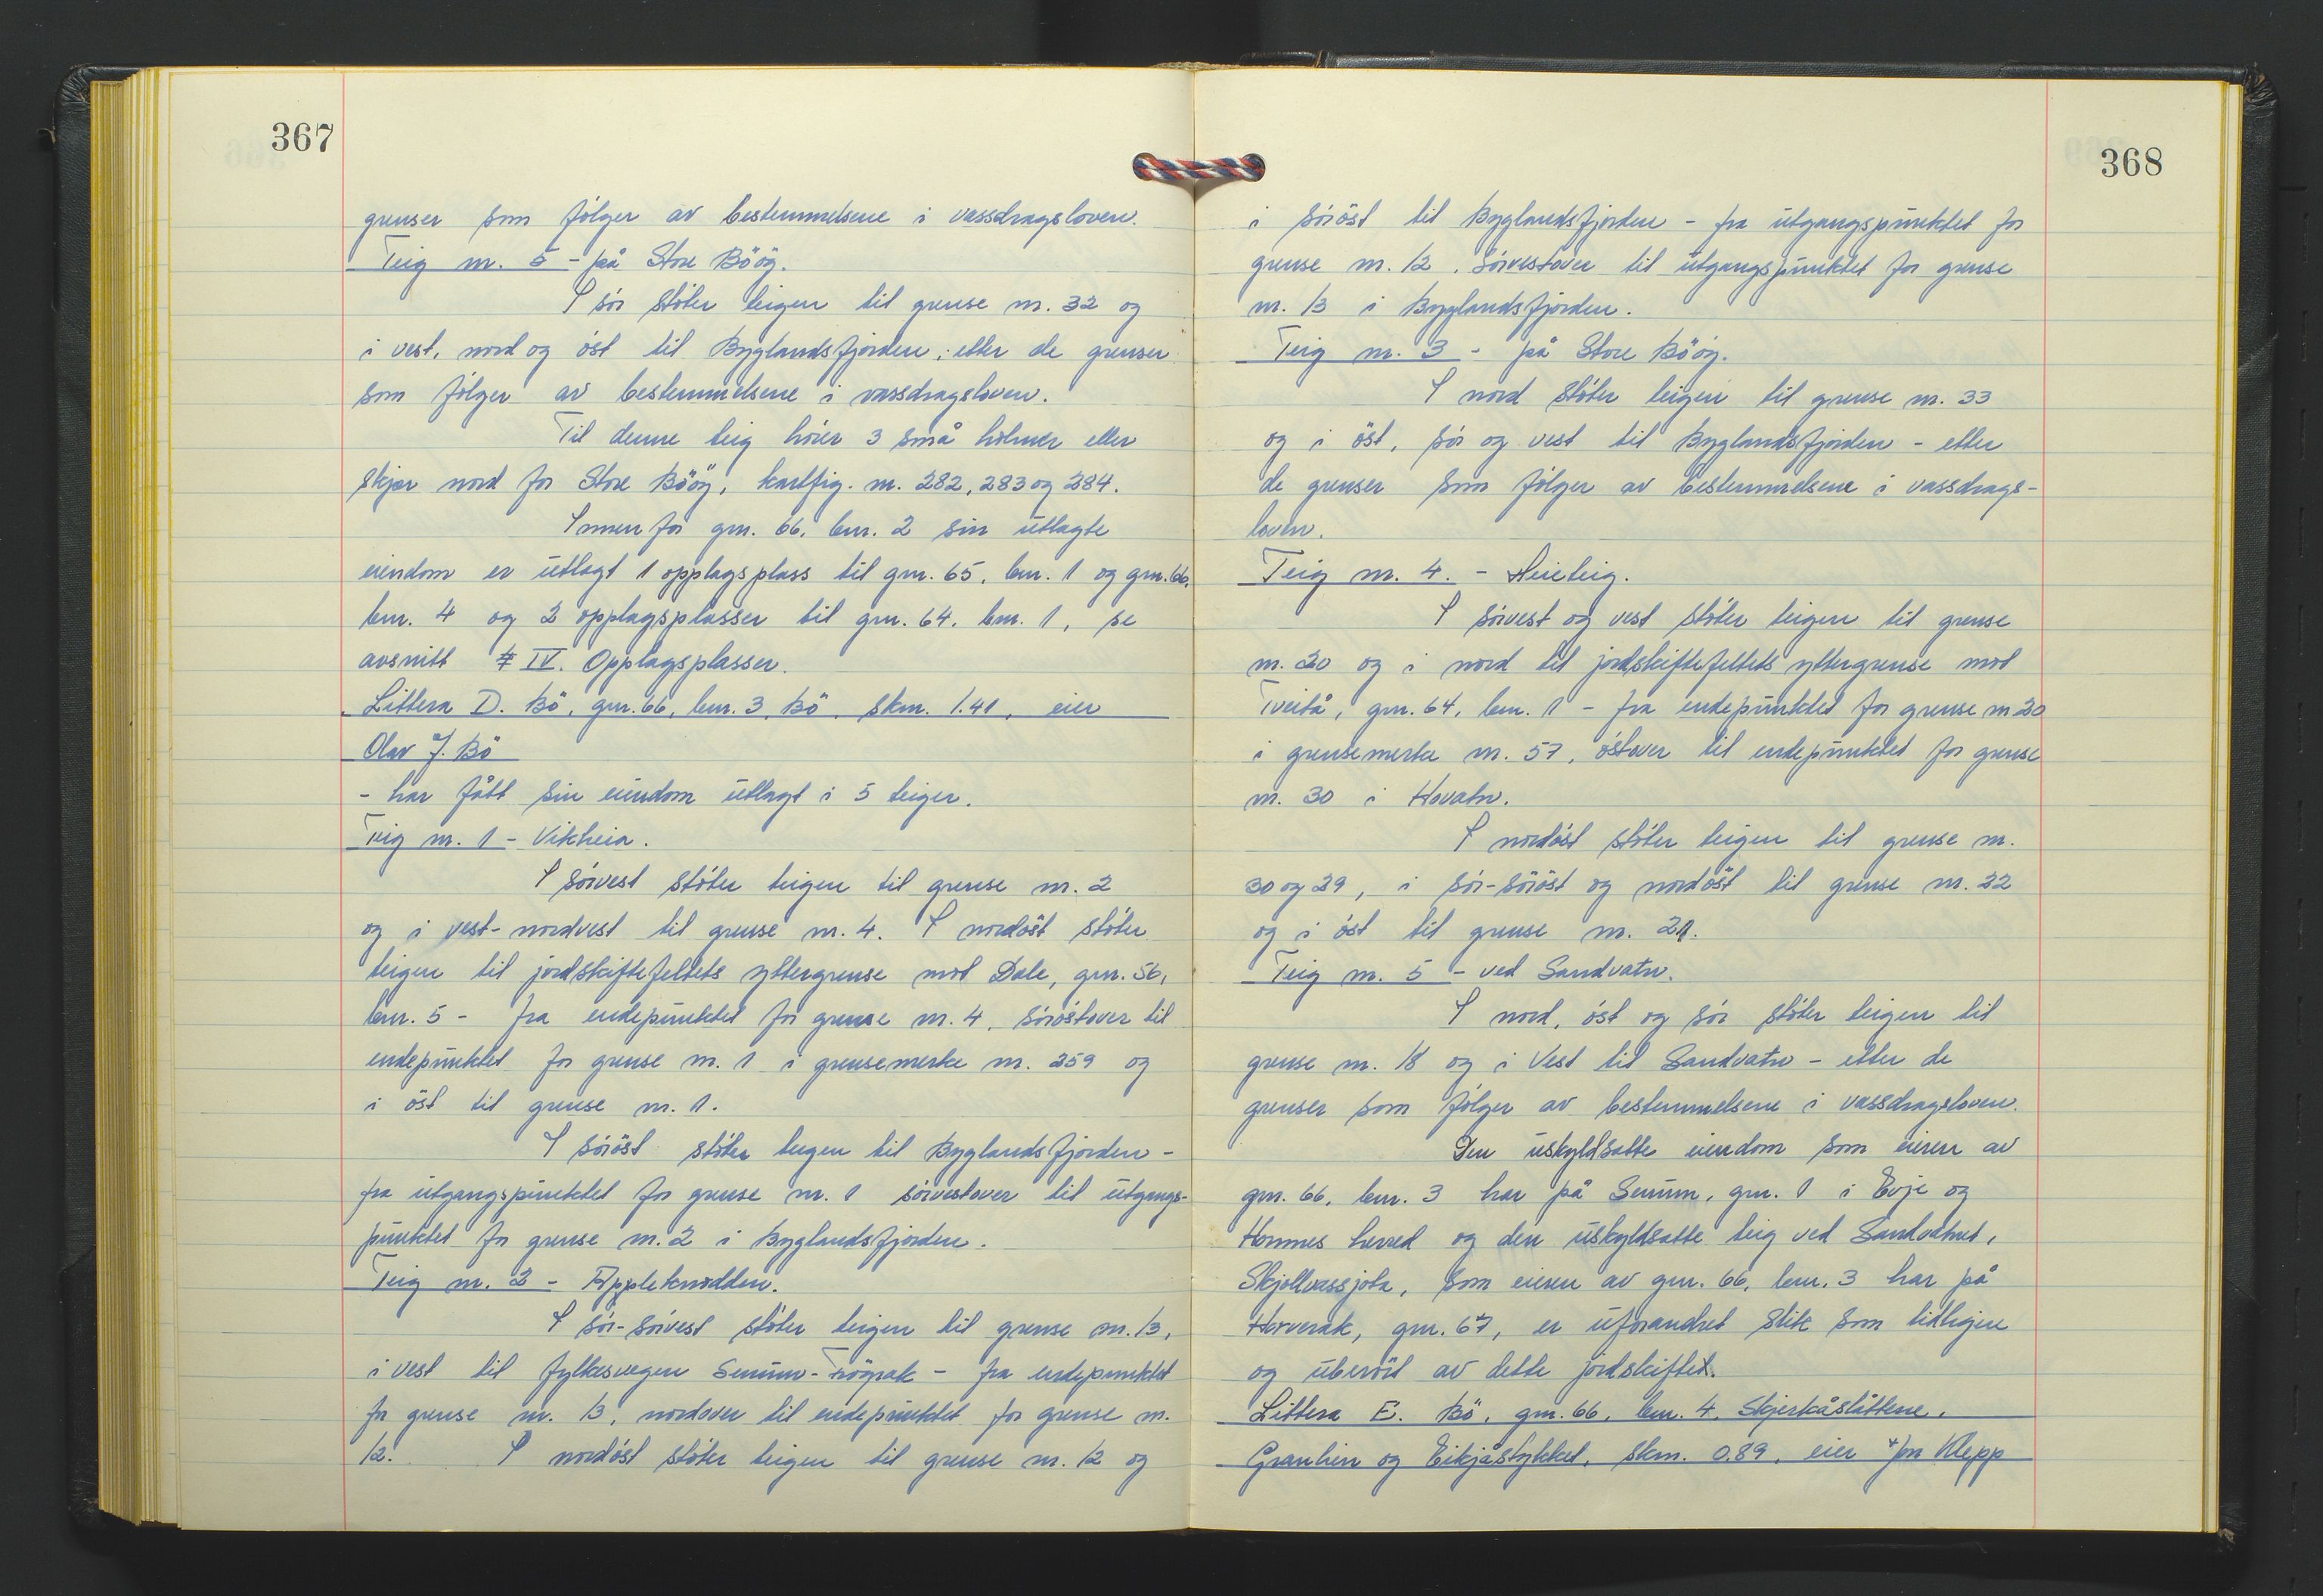 367
grenser som følger av bestemmelsene i vassdragsloven.
Teig nr. 5 - på Store Böög.
I sör stöter teigen til grense nr. 32 og
i vest, nord og öst til Byglandsfjorden, etter de grenser
som fölger av bestemmelsene i vassdragsloven.
Til denne teig hörer 3 små holmer eller
skjær nord for Store Böög, kartfig. nr. 282, 283 og 284.
Innen for gnr. 66, bnr. 2 sin utlagte
eiendom er utlagt 1 opplagsplass til gnr. 65, bnr. 1 og gnr. 66,
bnr. 4 og 2 opplagsplasser til gnr. 64, bnr. 1, se
avsnitt IV. Opplagsplasser.
Littera D. Bö, gnr. 66, bnr. 3, Bö, skm. 1.41, eier
Olav J. Bö
- har fått sin eiendom utlagt i 5 teiger.
Teig nr. 1 - Vikheia.
I sörvest stöter teigen til grense nr. 2
og i vest-nordvest til grense nr. 4. I nordöst stöter
teigen til jordskiftefeltets yttergrense mot Dale, gnr. 56,
bnr. 5 - fra endepunktet for grense nr. 4, söröstover til
endepunktet for grense nr. 1 i grensemerke nr. 259 og
i öst til grense nr. 1.
I söröst stöter teigen til Byglandsfjorden -
fra utgangspunktet for grense nr. 1 sörvestover til utgangs-
punktet for grense nr. 2 i Byglandsfjorden.
Teig nr. 2 - Appleknodden.
I sör-sörvest stöter teigen til grense nr. 13,
i vest til fylkesvegen Senum-Frögrak - fra endepunktet
for grense nr. 13, nordover til endepunktet for grense nr.
12. I nordöst stöter teigen til grense nr. 12 og
368
i söröst til Byglandsfjorden - fra utgangspunktet for
grense nr. 12, sörvestover til utgangspunktet for grense
nr. 13 i Byglandsfjorden.
Teig nr. 3 - på Store Böög.
I nord stöter teigen til grense nr. 33
og i öst, sör og vest til Byglandsfjorden - etter
de grenser som fölger av bestemmelsene i vassdrags-
loven.
Teig nr. 4. - Heieteig.
I sörvest og vest stöter teigen til grense
nr. 20 og i nord til jordskiftefeltets yttergrense mot
Tveitå, gnr. 64, bnr. 1 - fra endepunktet for grense nr 20
i grensemerke nr. 57, östover til endepunktet for grense
nr. 30 i Hovatn.
I nordöst stöter teigen til grense nr.
30 og 29, i sör-söröst og nordöst til grense nr. 22
og i öst til grense nr. 21.
Teig nr. 5 - ved Sandvatn.
I nord, öst og sör stöter teigen til
grense nr. 18 og i Vest til Sandvatn - etter de
grenser som fölger av bestemmelsene i vassdragsloven.
Den uskyldsatte eiendom som eieren av
gnr. 66, bnr. 3 har på Senum, gnr. 1 i Evje og
Hornnes herred og den uskyldsatte teig ved Sandvatnet,
Skjollvassjota, som eieren av gnr. 66, bnr. 3 har på
Horverak, gnr. 67, er uforandret slik som tidligere
og uberört av dette jordskiftet.
Littera E. Bö, gnr. 66, bnr. 4, Skjerkåslåttene,
Granlien og Eikjåstykket, skm. 0.89, eier Jon Klepp